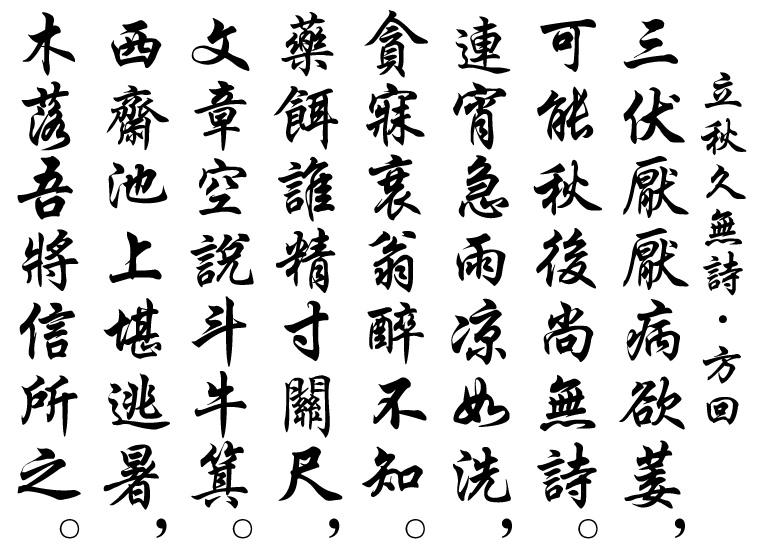 立秋久無詩·方回
三伏厭厭病欲萎,
可能秋後尚無詩。
連宵急雨凉如洗,
貪寐衰翁醉不知。
藥餌誰精寸關尺,
文章空說斗牛箕。
西齋池上堪逃暑,
木落吾將信所之。